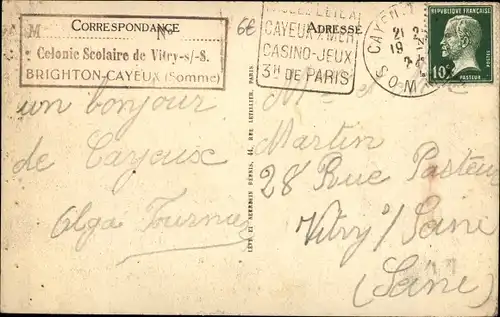 CORRESPONDANCE
M No
Colonie Scolaire de Vitry-s/-S.
BRIGHTON-CAYEUX (Somme)
un bonjour
de Cayeux
Olga Fournier
6€
ADRESSE
CAYEUX s/MER
CASINO-JEUX
3H DE PARIS
CAYEUX
21
19
SOMME
RÉPUBLIQUE FRANÇAISE
POSTES
10c
PASTEUR
Mme et
Martin
28 Rue Pasteur
Vitry s/ Seine
(Seine)
44, RUE LETELLIER, PARIS